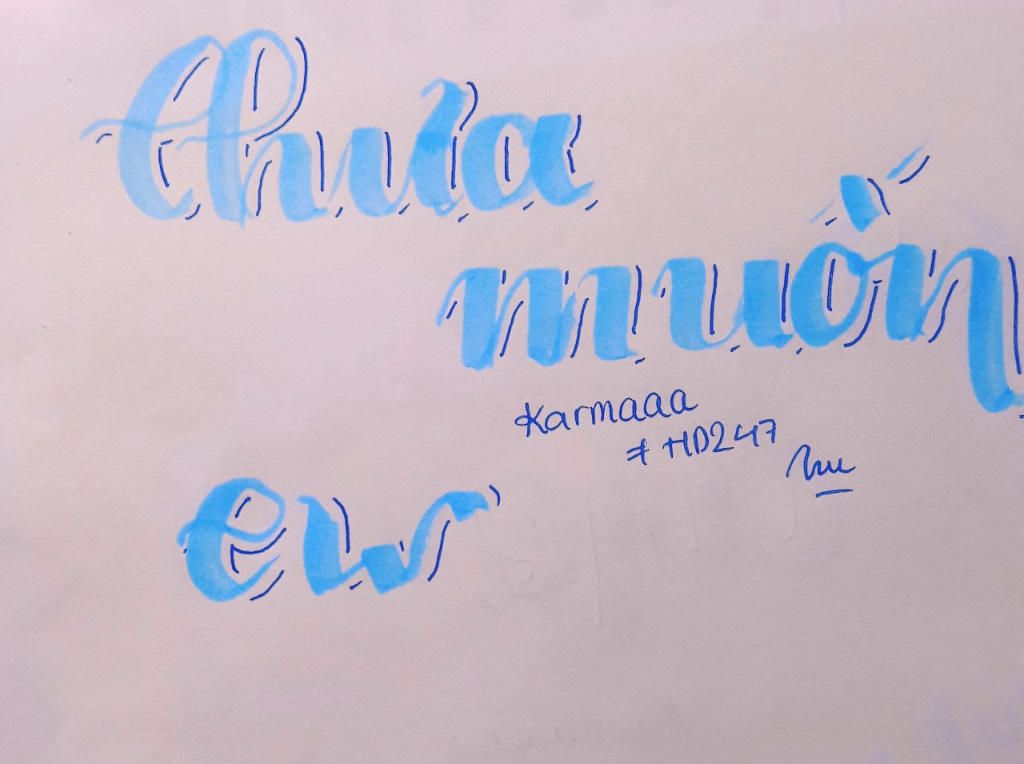 Chưa
muốn
Karmaaa
# HD247
ew